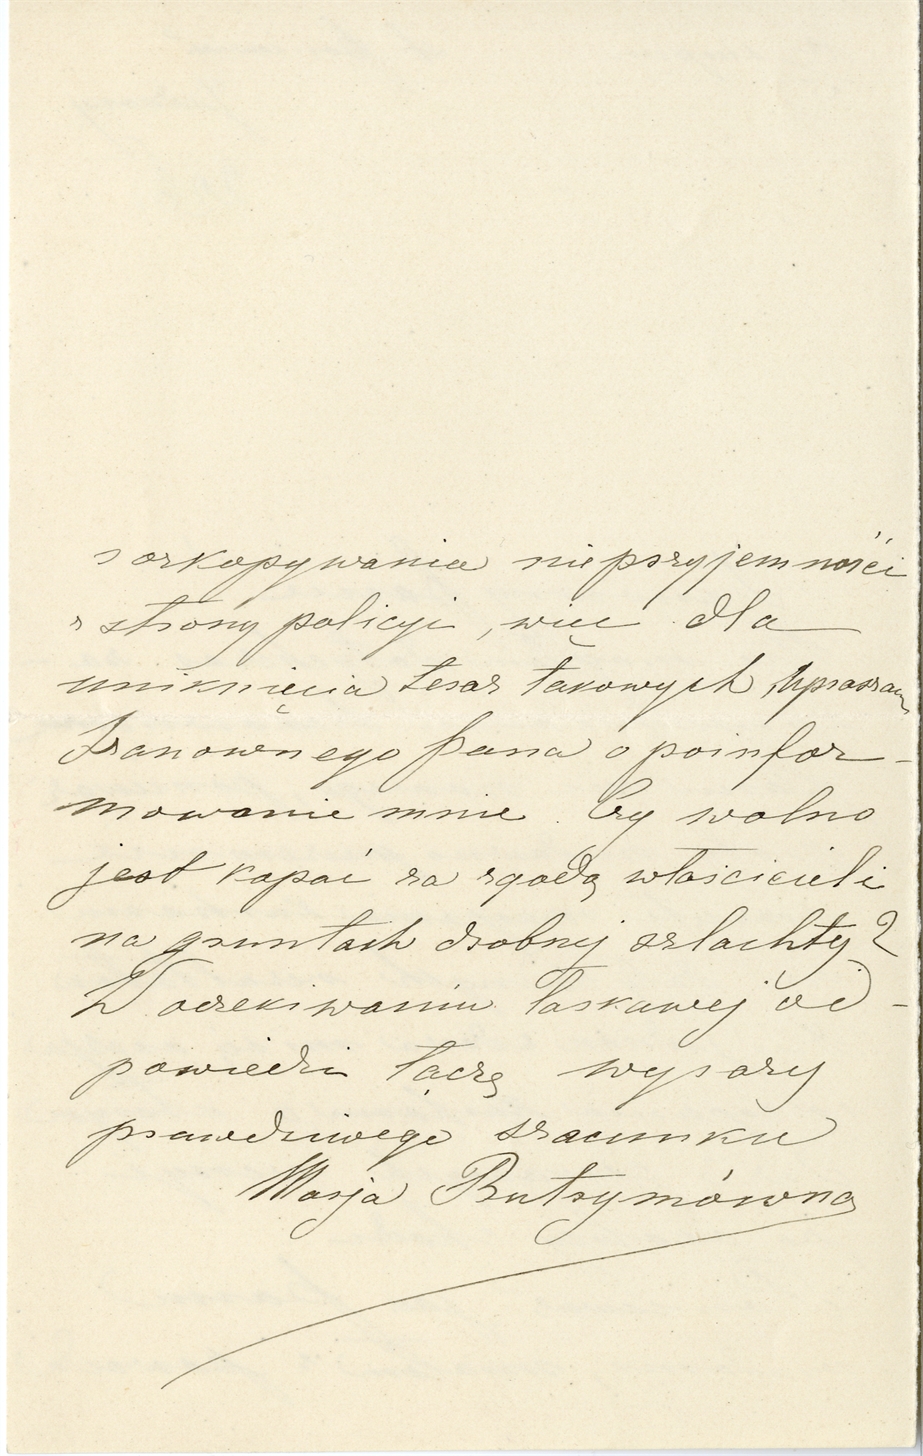 z rozkopywania nieprzyjemności
z strony policyi, więc dla
uniknięcia teraz takowych, upraszam
Szanownego Pana o poinfor-
mowanie mnie. Czy wolno
jest kopać za zgodą właścicieli
na gruntach drobnej szlachty?
W oczekiwaniu łaskawej od-
powiedzi łączę wyrazy
prawdziwego szacunku
Marja Butrymówna